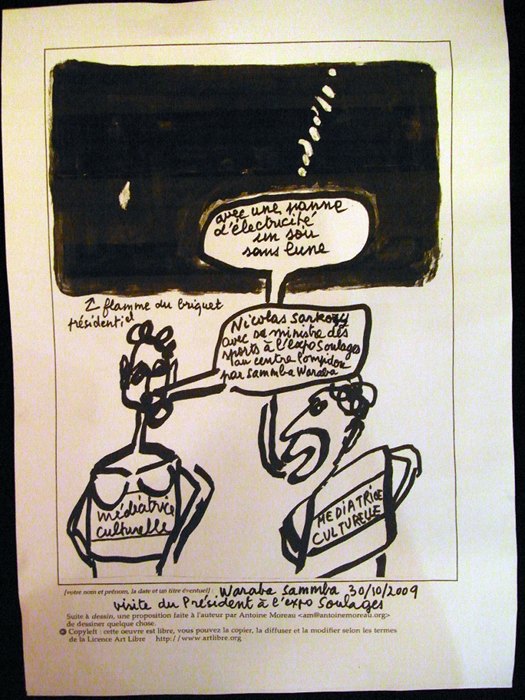 avec une panne
d'électricité
un soir
sans lune
↑ flamme du briquet
présidentiel
Nicolas Sarkozy
avec sa ministre des
sports à l'expo Soulages
au centre Pompidou
par Sammba Waraba
médiatrice
culturelle
MEDIATRICE
CULTURELLE
[votre nom et prénom, la date et un titre éventuel] Waraba Sammba 30/10/2009
visite du Président à l'expo Soulages
Suite à dessin, une proposition faite à l'auteur par Antoine Moreau <am@antoinemoreau.org>
de dessiner quelque chose.
Copyleft : cette oeuvre est libre, vous pouvez la copier, la diffuser et la modifier selon les termes
de la Licence Art Libre http://www.artlibre.org